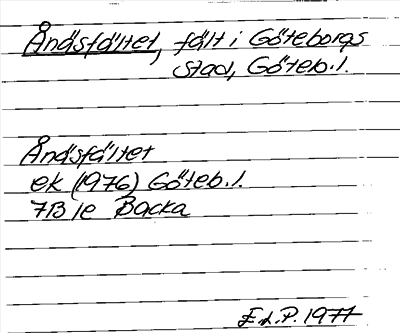 Ånäsfältet, fält i Göteborgs
stad, Göteb.l.
Ånäsfältet
ek (1976) Göteb.l.
7B 1e Backa
E.L.P. 1977